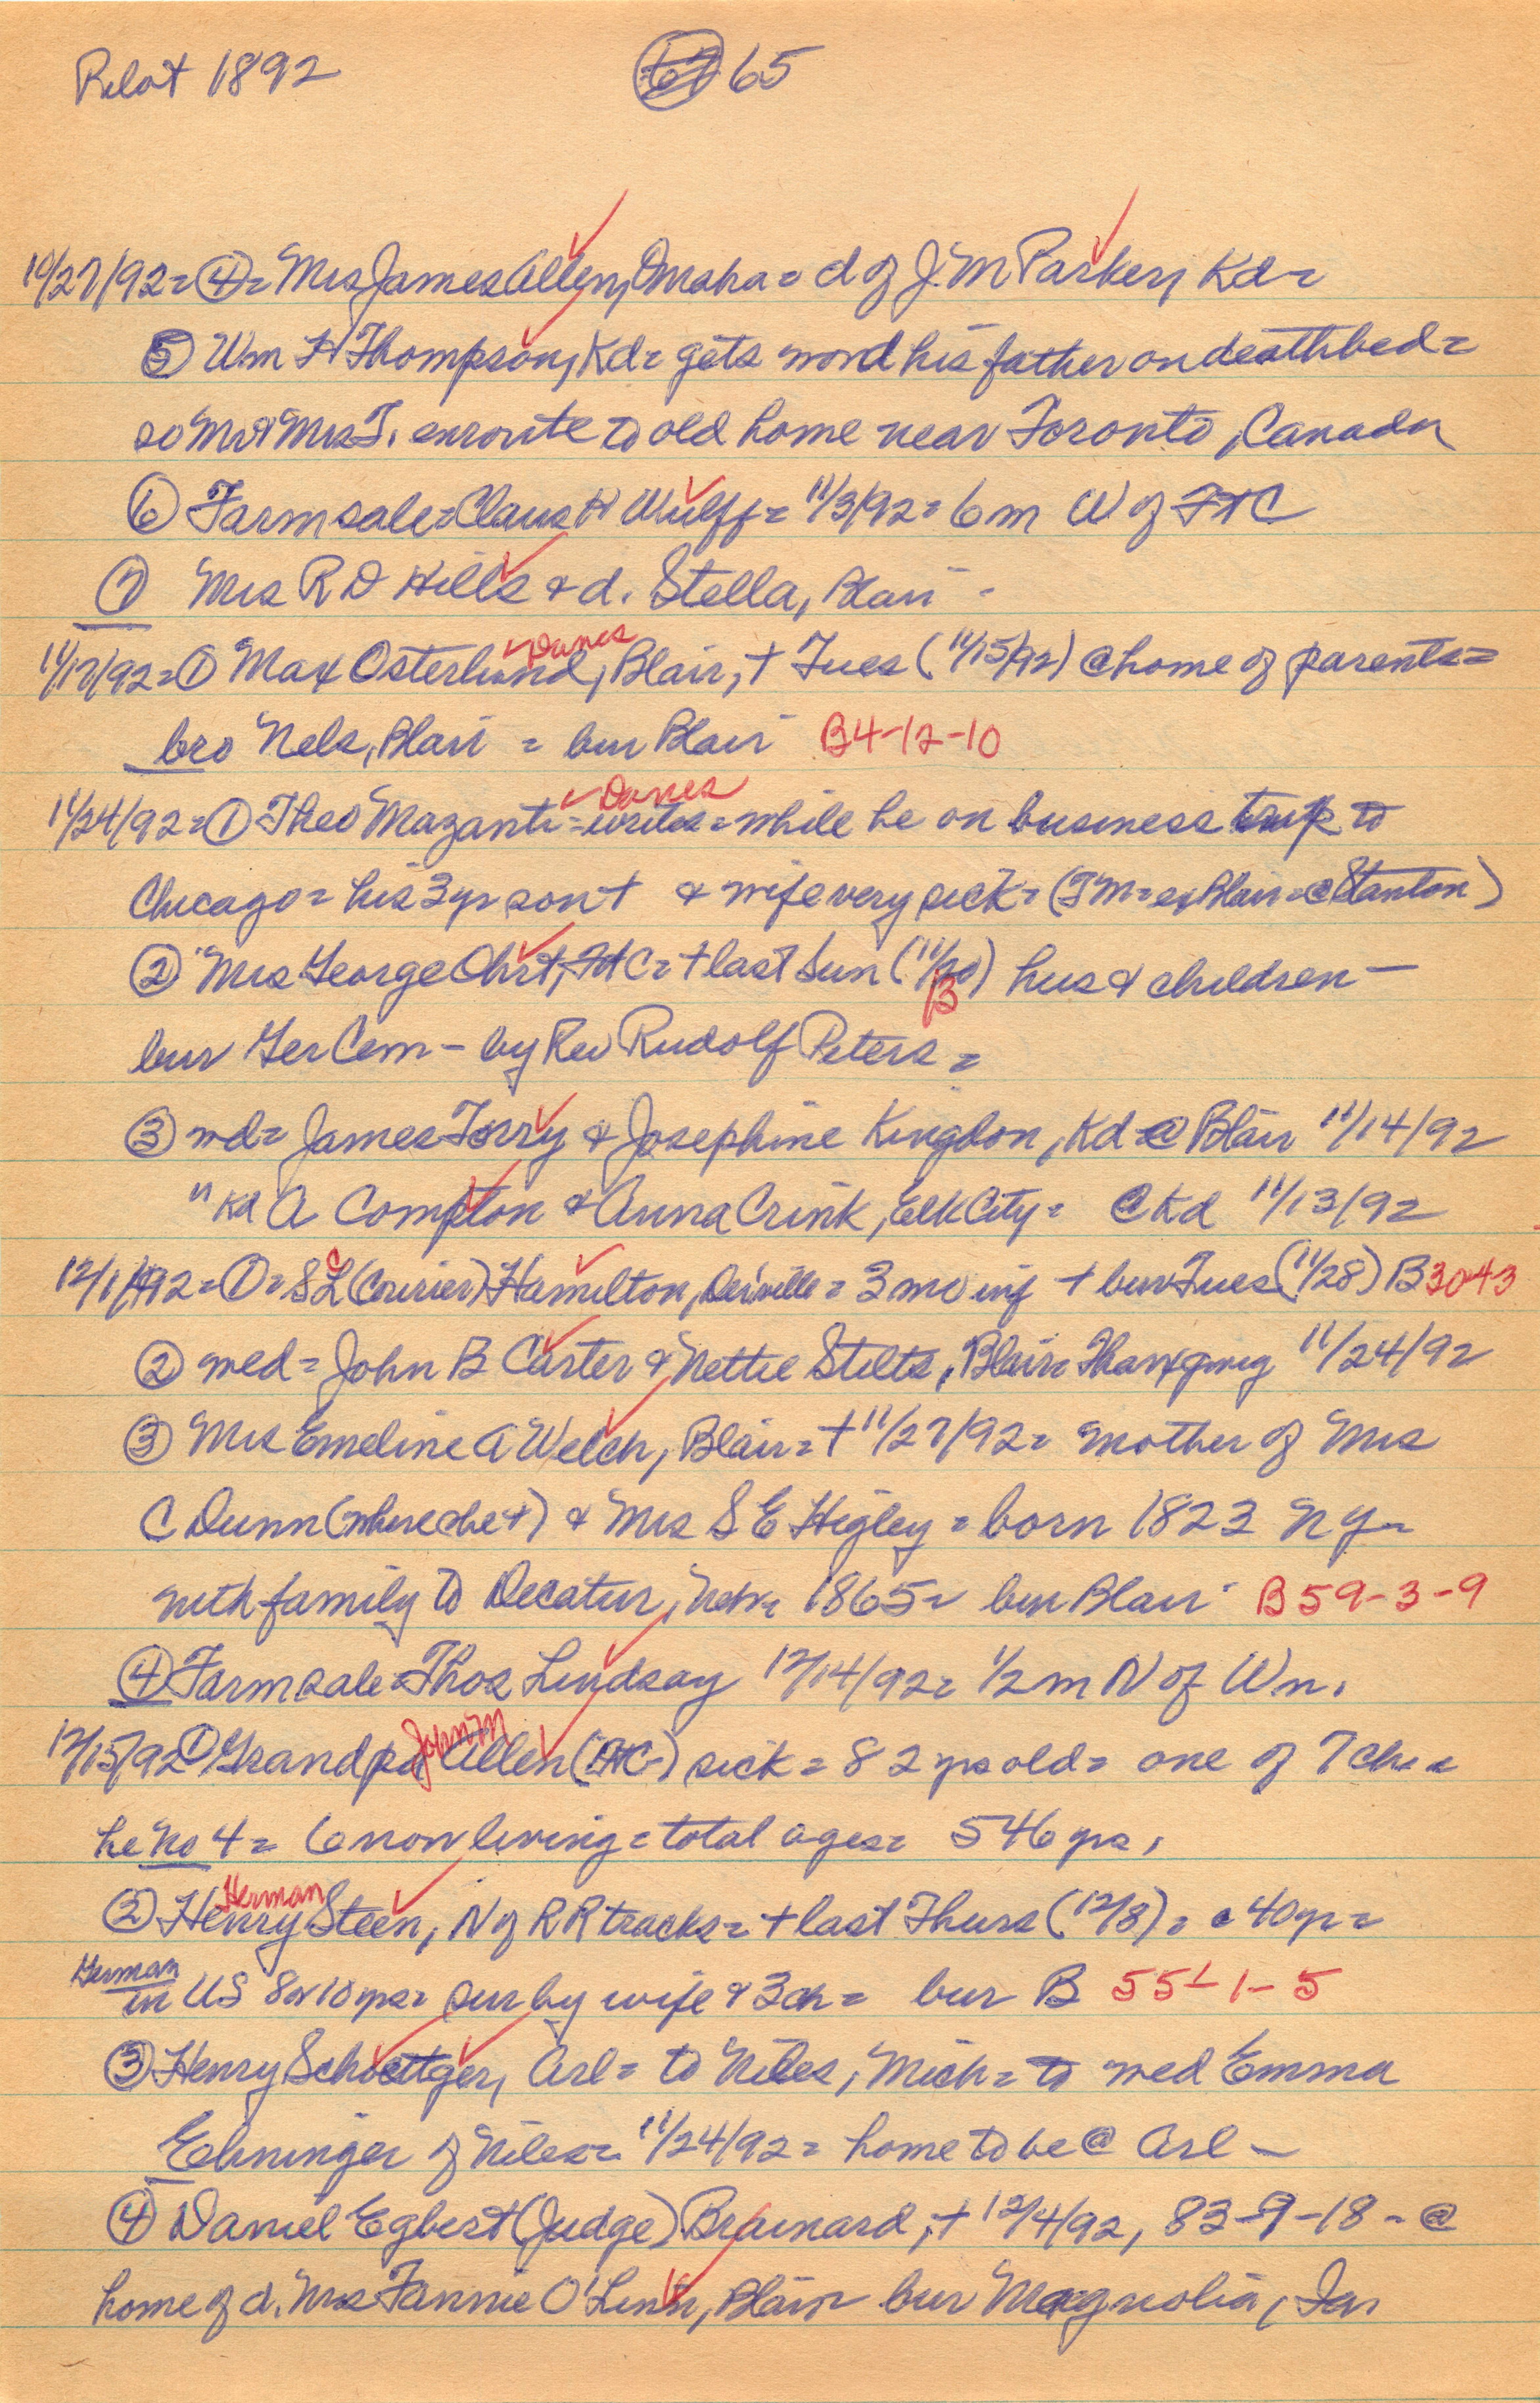 Pilot 1892 65
10/27/92 = ④ = Mrs James Allen, Omaha = d of J. M Parker, Kd =
⑤ Wm H Thompson, Kd = gets word his father on deathbed =
so Mr & Mrs T. enroute to old home near Toronto, Canada
⑥ Farm sale = Claus H Wulff = 11/3/92 = 6 m W of Ft C
⑦ Mrs R D Hills & d. Stella, Blair -
Danes
11/17/92 = ① Max Osterlund, Blair, + Tues (11/15/92) @ home of parents =
bro Nels, Blair = bur Blair B4-12-10
Danes
11/24/92 = ① Theo Mazanti = writes = while he on business trip to
Chicago = his 3 yr son + & wife very sick = (T M = ex Blair = @ Stanton)
② Mrs George Ohrt, Ft C = + last Sun (11/20) hus & children -
B
bur Ger Cem - by Rev Rudolf Peters =
③ wd = James Torry & Josephine Kingdon, Kd @ Blair 11/14/92
" Kd A Compton & Anna Crink, Elk City = @ Kd 11/13/92
12/1/92 = ① = S L (Courier) Hamilton, = 3 mo inf + bur Tues (11/28) B 30-4-3
② wed = John B Carter & Nettie Stilts, Blair = 11/24/92
③ Mrs Emeline A Welch, Blair = + 11/27/92 = mother of Mrs
C Dunn (where she +) & Mrs S E Higley = born 1823 N Y =
with family to Decatur, Neb = 1865 = bur Blair B 59-3-9
④ Farm sale = Thos Lindsay 12/14/92 = 1/2 m N of Wn.
John M
12/15/92 ① Grandpa Allen (Ft C) sick = 82 yrs old = one of 7 ch =
he no 4 = 6 now living = total ages = 546 yrs,
Herman
② Henry Steen, N of R R tracks = + last Thurs (12/8) = a 40 yr =
German
in US 8 or 10 yrs = sur by wife & 3 ch = bur B 55-1-5
③ Henry Schoettger, Arl = to Niles, Mich = to wed Emma
Ehninger of Niles = 11/24/92 = home to be @ Arl -
④ Daniel Egbert (Judge) Brainard, + 12/4/92, 83-9-18 - @
home of d. Mrs Fannie O'Linn, Blair bur Magnolia, Ia